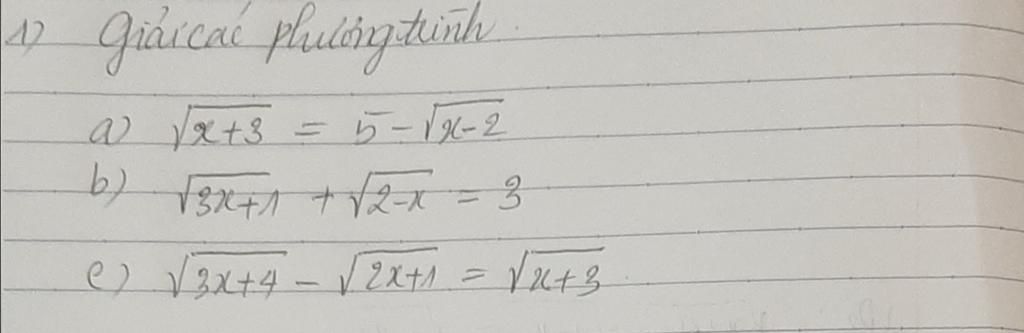 1) Giải các phương trình.
a) √(x+3) = 5 - √(x-2)
b) √(3x+1) + √(2-x) = 3
c) √(3x+4) - √(2x+1) = √(x+3).